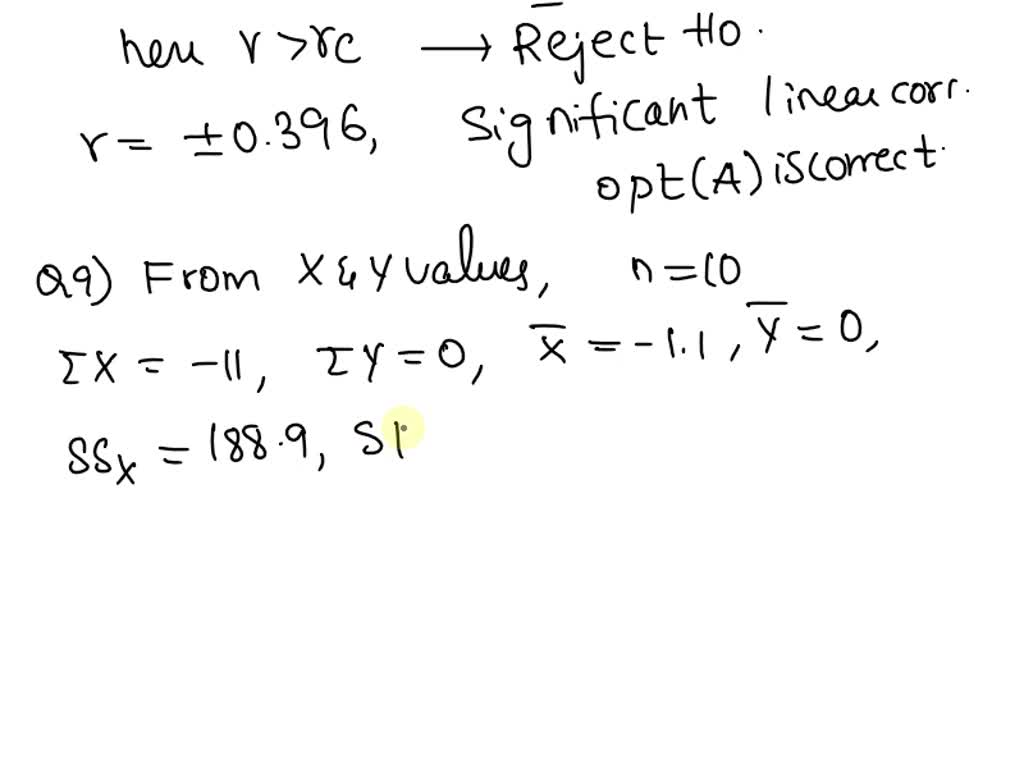 heu r > rc → Reject H0.
r = ±0.396, Significant linear corr.
opt(A) is correct.
Q9) From X & Y values, n = 10
ΣX = -11, ΣY = 0, X̅ = -1.1, Y̅ = 0,
SSX = 188.9, SP